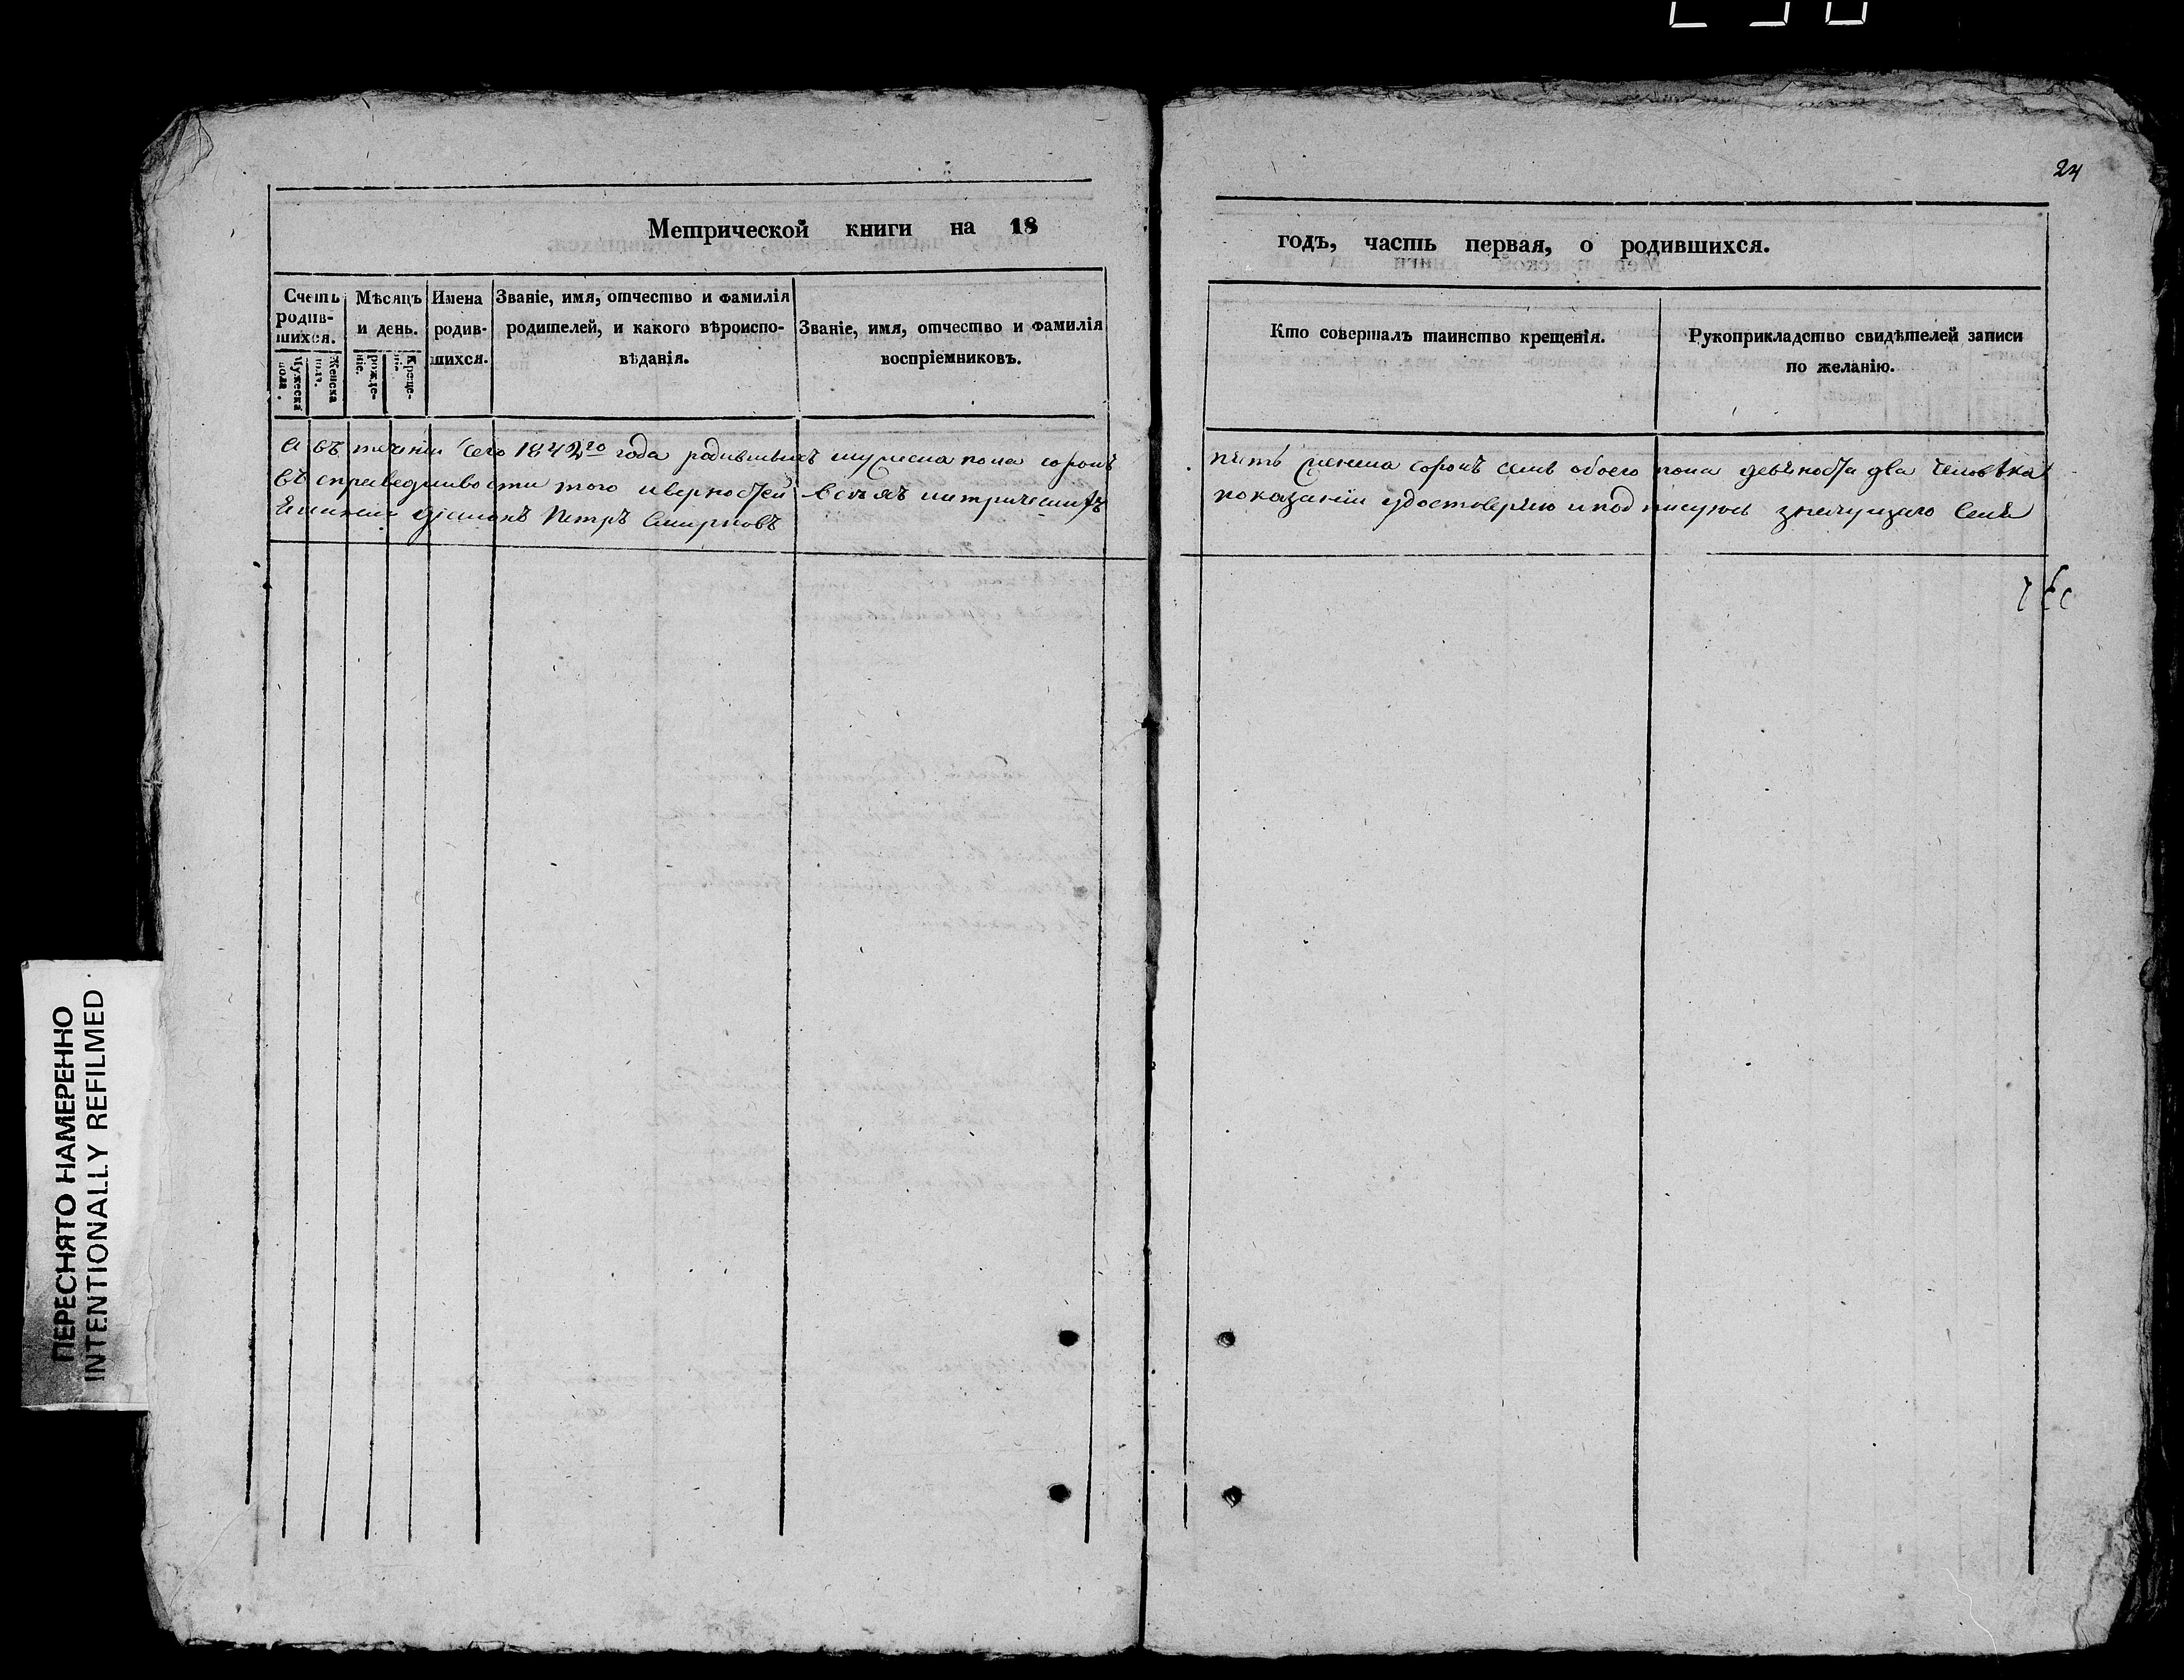 24
Метрической книги на 18
годъ, часть первая, о родившихся.
Счетъ родив-шихся.
Мужеска пола.
Женска пола.
Мѣсяцъ и день.
рожде-нiе.
Креще-нiя.
Имена родив-шихся.
Званіе, имя, отчество и фамилія
родителей, и какого вѣроиспо-
вѣданія.
Званіе, имя, отчество и фамилія
воспріемниковъ.
Кто совершалъ таинство крещенія.
Рукоприкладство свидѣтелей записи
по желанію.
А въ теченіи сего 1842го года родившихъ мужеска пола сорокъ пять женска сорокъ семь обоего пола девяноста два человѣка
въ справедливости того и верностей всѣхъ метрическихъ показаніи удостоверяю и подписуюсь
діаконъ Петръ Смирновъ
ПЕРЕСНЯТО НАМЕРЕННО
INTENTIONALLY REFILMED